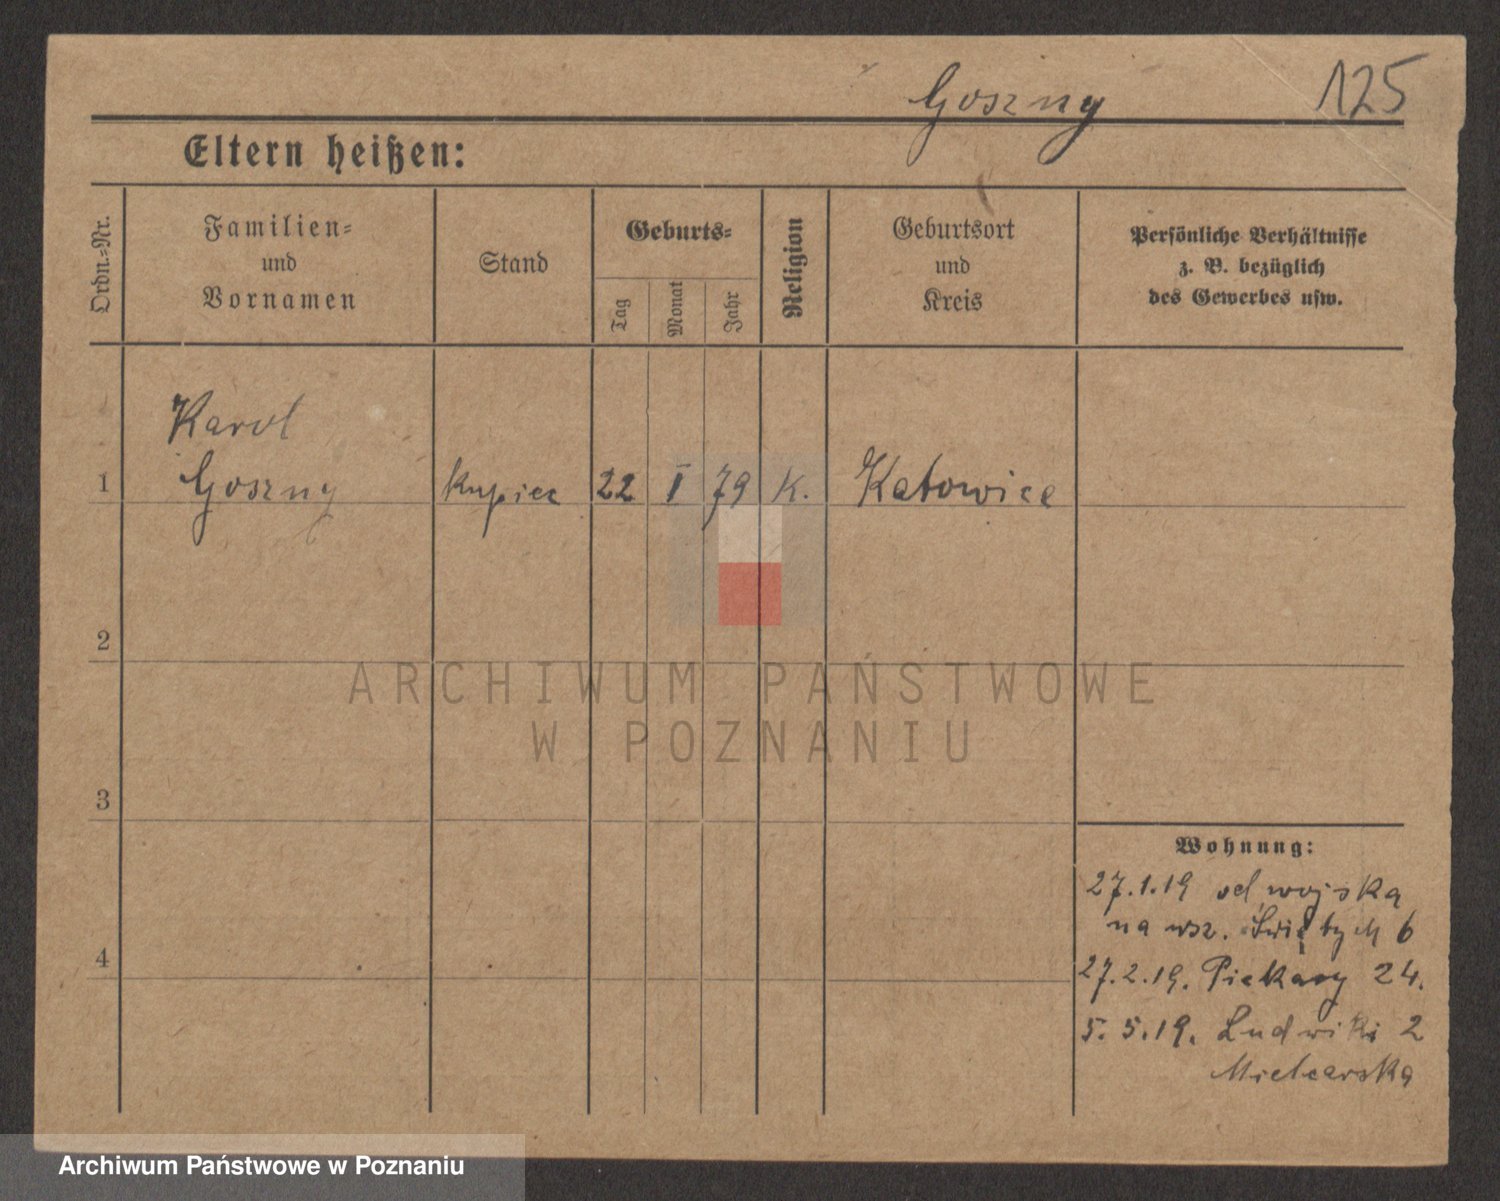 Goszny 125
Eltern heißen:
Ordn.-Nr.
Familien-
und
Vornamen
Stand
Geburts-
Tag
Monat
Jahr
Religion
Geburtsort
und
Kreis
Persönliche Verhältnisse
z. B. bezüglich
des Gewerbes usw.
Karol
1 Goszny kupiec 22 I 79 K. Katowice
2
3
4
Wohnung:
27.1.19 od wojska
na wsz. Świętych 6
27.2.19. Piekary 24.
5. 5.19. Ludwiki 2
Mielcarska
ARCHIWUM PAŃSTWOWE
W POZNANIU
Archiwum Państwowe w Poznaniu